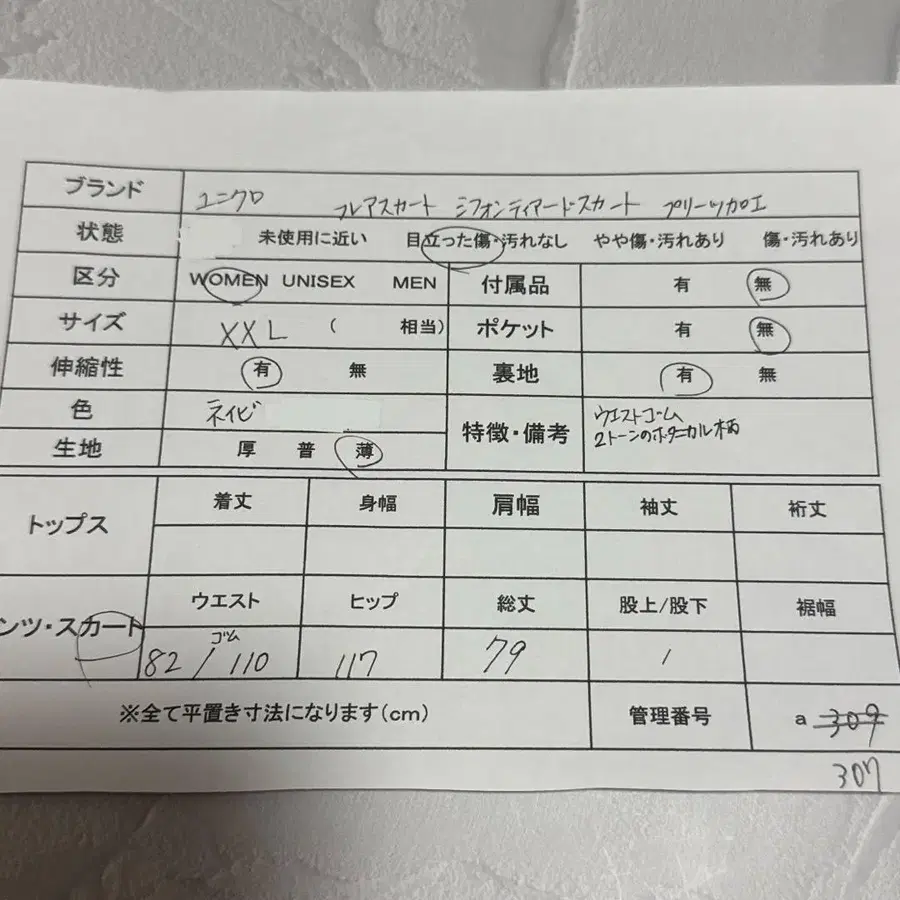 ブランド ユニクロ フレアスカート シフォンティアードスカート プリーツ加工
状態 未使用に近い 目立った傷・汚れなし やや傷・汚れあり 傷・汚れあり
区分 WOMEN UNISEX MEN 付属品 有 無
サイズ XXL ( 相当) ポケット 有 無
伸縮性 有 無 裏地 有 無
色 ネイビ 特徴・備考 ウエストゴム
2トーンのボタニカル柄
生地 厚 普 薄
トップス 着丈 身幅 肩幅 袖丈 裄丈
ンツ・スカート ウエスト ヒップ 総丈 股上/股下 裾幅
ゴム
82 / 110 117 79 /
※全て平置き寸法になります(cm) 管理番号 a 309
307